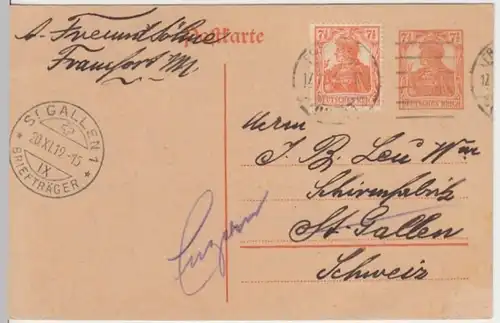 A. Freund Söhne
Frankfurt M
Postkarte
7½ 7½
DEUTSCHES REICH
7½ 7½
DEUTSCHES REICH
ST GALLEN 1
20.XI.19-15
IX
BRIEFTRÄGER
Herrn
J. B. Leu Wwe
Schirmfabrik
St. Gallen
Schweiz
Luzern